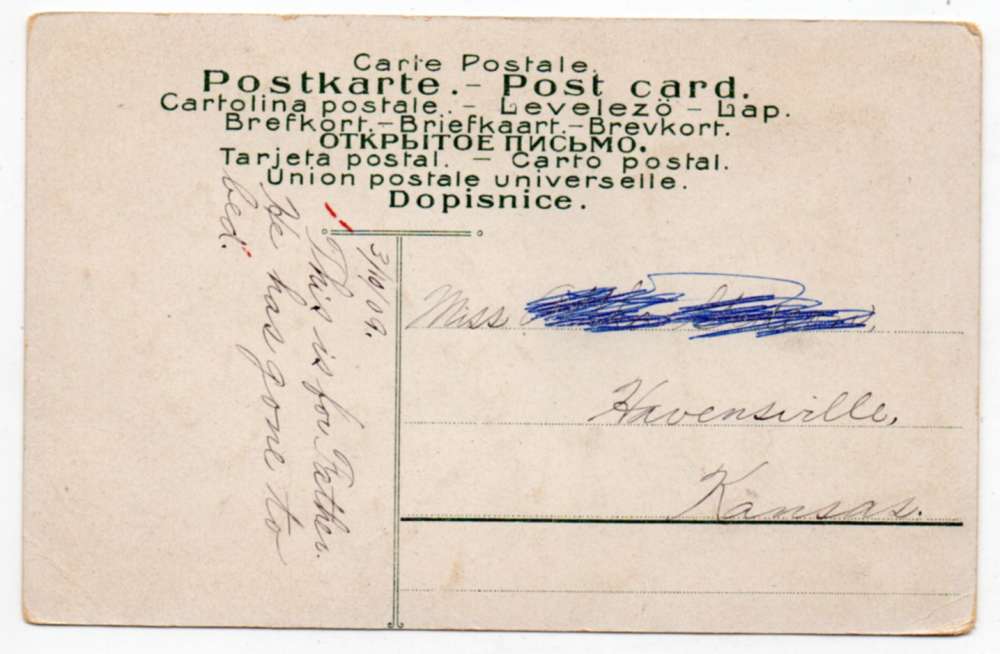 Carte Postale.
Postkarte. - Post card.
Cartolina postale. - Levelező - Lap.
Brefkort. - Briefkaart. - Brevkort.
ОТКРЫТОЕ ПИСЬМО.
Tarjeta postal. - Carto postal.
Union postale universelle.
Dopisnice.
3/10/09.
This is for Father.
He has gone to
bed.
Miss
Havensville,
Kansas.